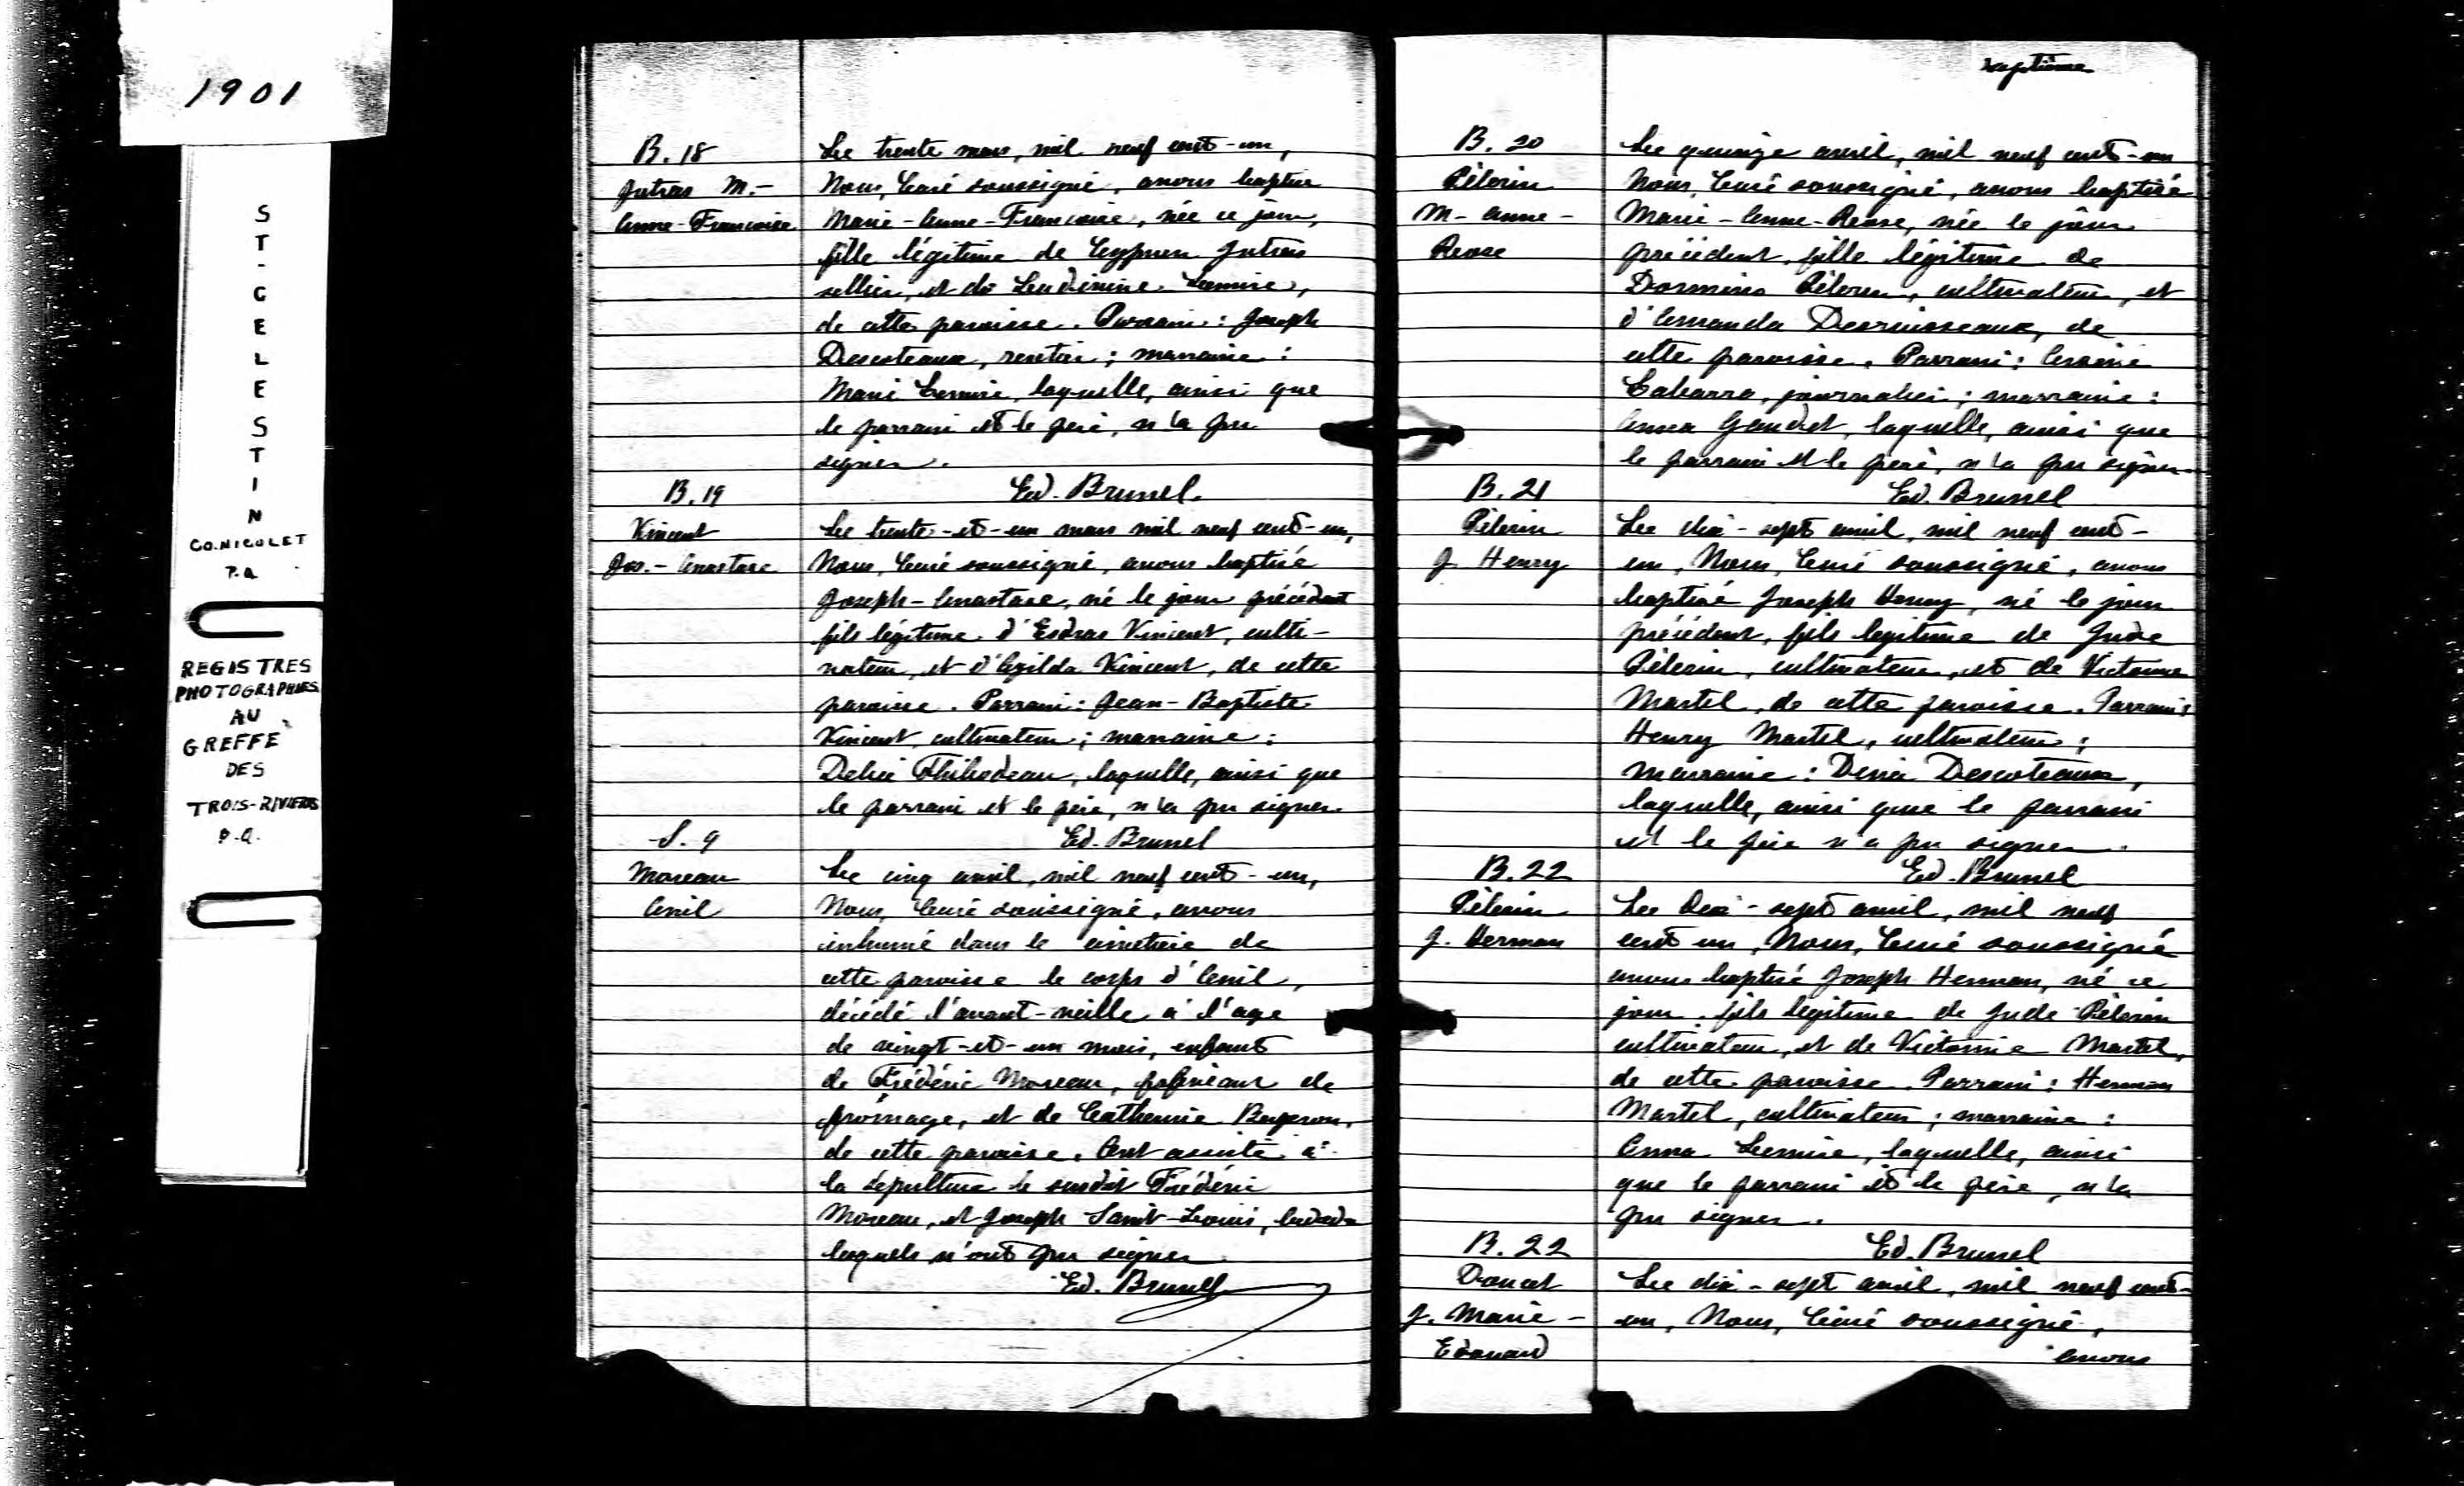 1901
ST-CELESTIN
CO. NICOLET
P.Q.
REGISTRES
PHOTOGRAPHIÉS
AU
GREFFE
DES
TROIS-RIVIERES
P.Q.
B. 18
Jutras M.-
Anne-Françoise
Le trente mars, mil neuf cent-un,
Nous, Curé soussigné, avons baptisé
Marie-Anne-Françoise, née ce jour,
fille légitime de Cyprien Jutras
sellier, et de Lemire,
de cette paroisse. Parrain: Joseph
Descoteaux, rentier; marraine:
Marie Lemire, laquelle, ainsi que
le parrain et le père, n'a pu
signer.
Ed. Brunel
B. 19
Vincent
Jos.-Anastase
Le trente-et-un mars mil neuf cent-un,
Nous, Curé soussigné, avons baptisé
Joseph-Anastase, né le jour précédent
fils légitime d'Esdras Vincent, culti-
vateur, et d'Azilda Vincent, de cette
paroisse. Parrain: Jean-Baptiste
Vincent, cultivateur; marraine:
Delia Thibodeau, laquelle, ainsi que
le parrain et le père, n'a pu signer.
Ed. Brunel
S. 9
Moreau
Anil
Le cinq avril, mil neuf cent-un,
Nous, Curé soussigné, avons
inhumé dans le cimetière de
cette paroisse le corps d'Anil,
décédé l'avant-veille à l'age
de vingt-et-un mois, enfant
de Frédéric Moreau, fabricant de
fromage, et de Catherine Bergeron,
de cette paroisse. Ont assisté à
la sépulture le susdit Frédéric
Moreau, et Joseph Saint-Louis,
lesquels n'ont pu signer
Ed. Brunel
septième
B. 20
Pélerin
M-Anne-
Rose
Le quinze avril, mil neuf cent-un
Nous, Curé soussigné, avons baptisé
Marie-Anne-Rose, née le jour
précédent, fille légitime de
Pélerin, cultivateur, et
d'Amanda Desruisseaux, de
cette paroisse. Parrain:
Labarre, journalier; marraine:
Anna Gaudet, laquelle, ainsi que
le parrain et le père, n'a pu signer
Ed. Brunel
B. 21
Pélerin
J Henry
Le dix-sept avril, mil neuf cent-
un, Nous, Curé soussigné, avons
baptisé Joseph Henry, né le jour
précédent, fils legitime de Jude
Pélerin, cultivateur, et de Victorine
Martel, de cette paroisse. Parrain:
Henry Martel, cultivateur;
marraine: Descoteaux,
laquelle, ainsi que le parrain
et le père n'a pu signer.
Ed. Brunel
B. 22
Pélerin
J. Herman
Le dix-sept avril, mil neuf
cent un, Nous, Curé soussigné
avons baptisé Joseph Herman, né ce
jour, fils légitime de Jude Pélerin
cultivateur, et de Victorine Martel,
de cette paroisse. Parrain: Herman
Martel, cultivateur; marraine:
Anna Lemire, laquelle, ainsi
que le parrain et le père, n'a
pu signer.
Ed. Brunel
B. 22
Doucet
J. Marie-
Edouard
Le dix-sept avril, mil neuf cent-
un, Nous, Curé soussigné,
avons